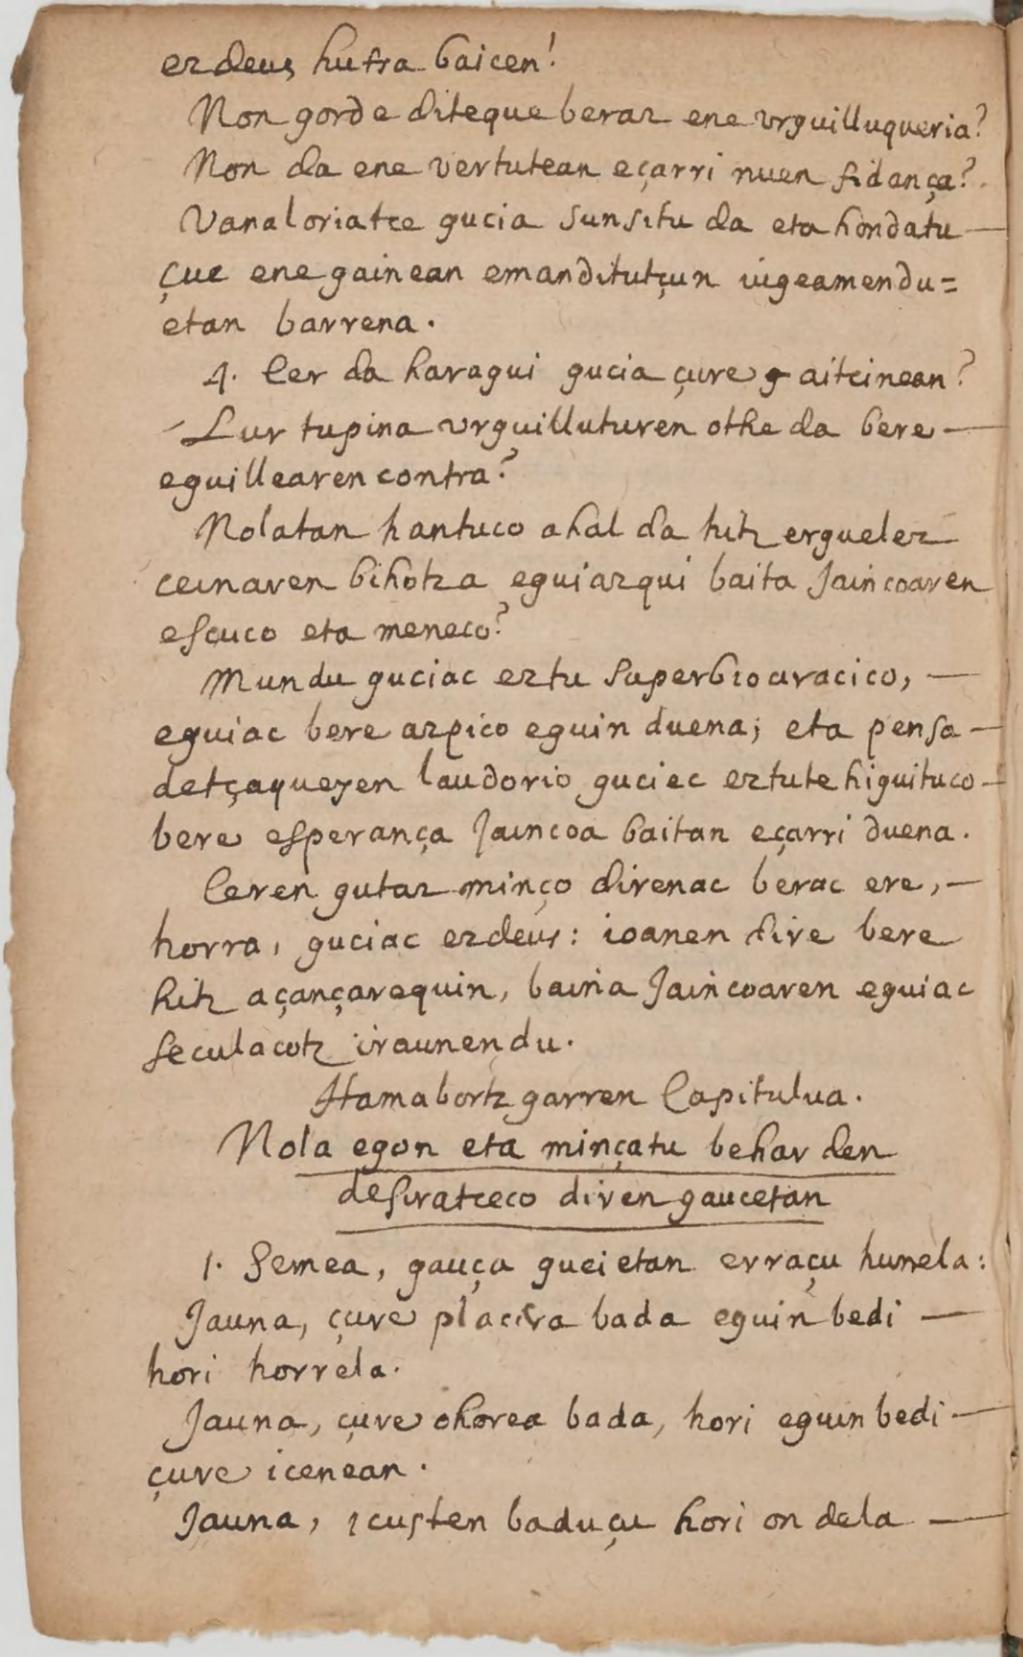 ezdeus hutsa baicen!
Non gorde diteque beraz ene vrguilluqueria?
Non da ene vertutean eçarri nuen fidança?
Vanaloriatce gucia sunsitu da eta hondatu —
çuc ene gainean emanditutçun iugeamendu=
etan barrena.
4. Cer da haragui gucia çure aitcinean?
Lur tupina vrguilluturen othe da bere —
eguillearen contra?
Nolatan hantuco ahal da hitz erguelez
ceinaren bihotza eguiazqui baita Jaincoaren
escuco eta meneco?
Mundu guciac eztu superbioaracico, —
eguiac bere azpico eguin duena; eta pensa —
detçaqueyen laudorio guciec eztute higuituco —
bere esperança Jaincoa baitan eçarri duena.
Ceren gutaz minço direnac berac ere, —
horra, guciac ezdeus: ioanen dire bere
hitz açançarequin, baina Jaincoaren eguiac
seculacotz iraunendu.
Hamabortz garren Capitulua.
Nola egon eta minçatu behar den
desiratceco diren gaucetan
1. Semea, gauça gucietan erraçu hunela:
Jauna, çure placera bada eguin bedi —
hori horrela.
Jauna, çure ohorea bada, hori eguin bedi —
çure icenean.
Jauna, icusten baduçu hori on dela —